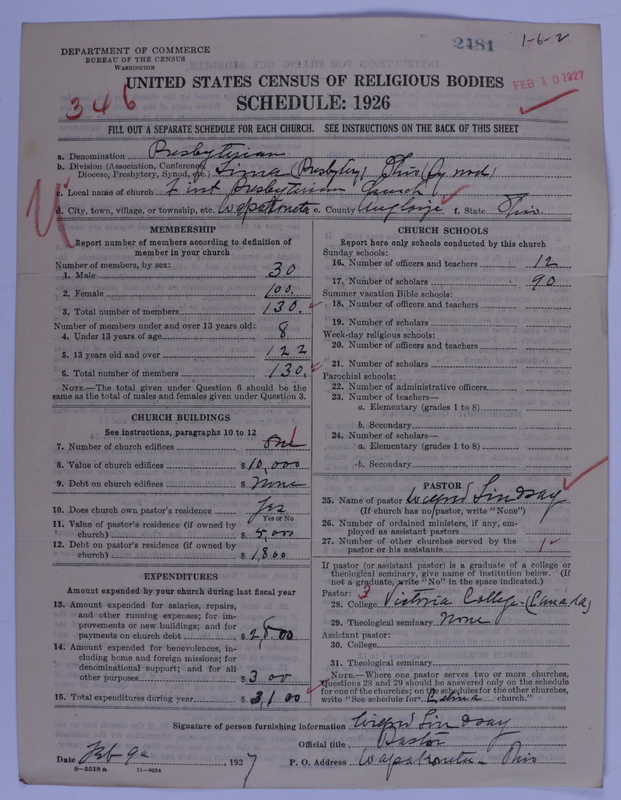 2481
1-6-2
DEPARTMENT OF COMMERCE
BUREAU OF THE CENSUS
WASHINGTON
UNITED STATES CENSUS OF RELIGIOUS BODIES
FEB 10 1927
346
SCHEDULE: 1926
FILL OUT A SEPARATE SCHEDULE FOR EACH CHURCH. SEE INSTRUCTIONS ON THE BACK OF THIS SHEET
a. Denomination Presbyterian
b. Division (Association, Conference, Diocese, Presbytery, Synod, etc.) Lima (Presbytery) Ohio (Synod)
c. Local name of church First Presbyterian Church
d. City, town, village, or township, etc. Wapakoneta e. County Auglaize f. State Ohio
MEMBERSHIP
Report number of members according to definition of
member in your church
Number of members, by sex:
1. Male 30
2. Female 100.
3. Total number of members 130.
Number of members under and over 13 years old:
4. Under 13 years of age 8
5. 13 years old and over 122
6. Total number of members 130.
NOTE.—The total given under Question 6 should be the
same as the total of males and females given under Question 3.
CHURCH BUILDINGS
See instructions, paragraphs 10 to 12
7. Number of church edifices One
8. Value of church edifices $10,000
9. Debt on church edifices $ None
10. Does church own pastor's residence Yes
Yes or No
11. Value of pastor's residence (if owned by
church) $5,000
12. Debt on pastor's residence (if owned by
church) $1,800
EXPENDITURES
Amount expended by your church during last fiscal year
13. Amount expended for salaries, repairs,
and other running expenses; for im-
provements or new buildings; and for
payments on church debt $2,800
14. Amount expended for benevolences, in-
cluding home and foreign missions; for
denominational support; and for all
other purposes $300
15. Total expenditures during year $3,100
CHURCH SCHOOLS
Report here only schools conducted by this church
Sunday schools:
16. Number of officers and teachers 12
17. Number of scholars 90
Summer vacation Bible schools:
18. Number of officers and teachers
19. Number of scholars
Week-day religious schools:
20. Number of officers and teachers
21. Number of scholars
Parochial schools:
22. Number of administrative officers
23. Number of teachers—
a. Elementary (grades 1 to 8)
b. Secondary
24. Number of scholars—
a. Elementary (grades 1 to 8)
b. Secondary
PASTOR
25. Name of pastor Wilfrid Lindsay
(If church has no pastor, write "None")
26. Number of ordained ministers, if any, em-
ployed as assistant pastors
27. Number of other churches served by the
pastor or his assistants 1
If pastor (or assistant pastor) is a graduate of a college or
theological seminary, give name of institution below. (If
not a graduate, write "No" in the space indicated.)
Pastor: 3
28. College Victoria College-(Canada)
29. Theological seminary None
Assistant pastor:
30. College
31. Theological seminary
NOTE.—Where one pastor serves two or more churches,
Questions 28 and 29 should be answered only on the schedule
for one of the churches; on the schedules for the other churches,
write "See schedule for Celina church."
Signature of person furnishing information Wilfrid Lindsay
Official title Pastor
Date Feb 9 1927 P. O. Address Wapakoneta - Ohio
8-5518a 11-4654